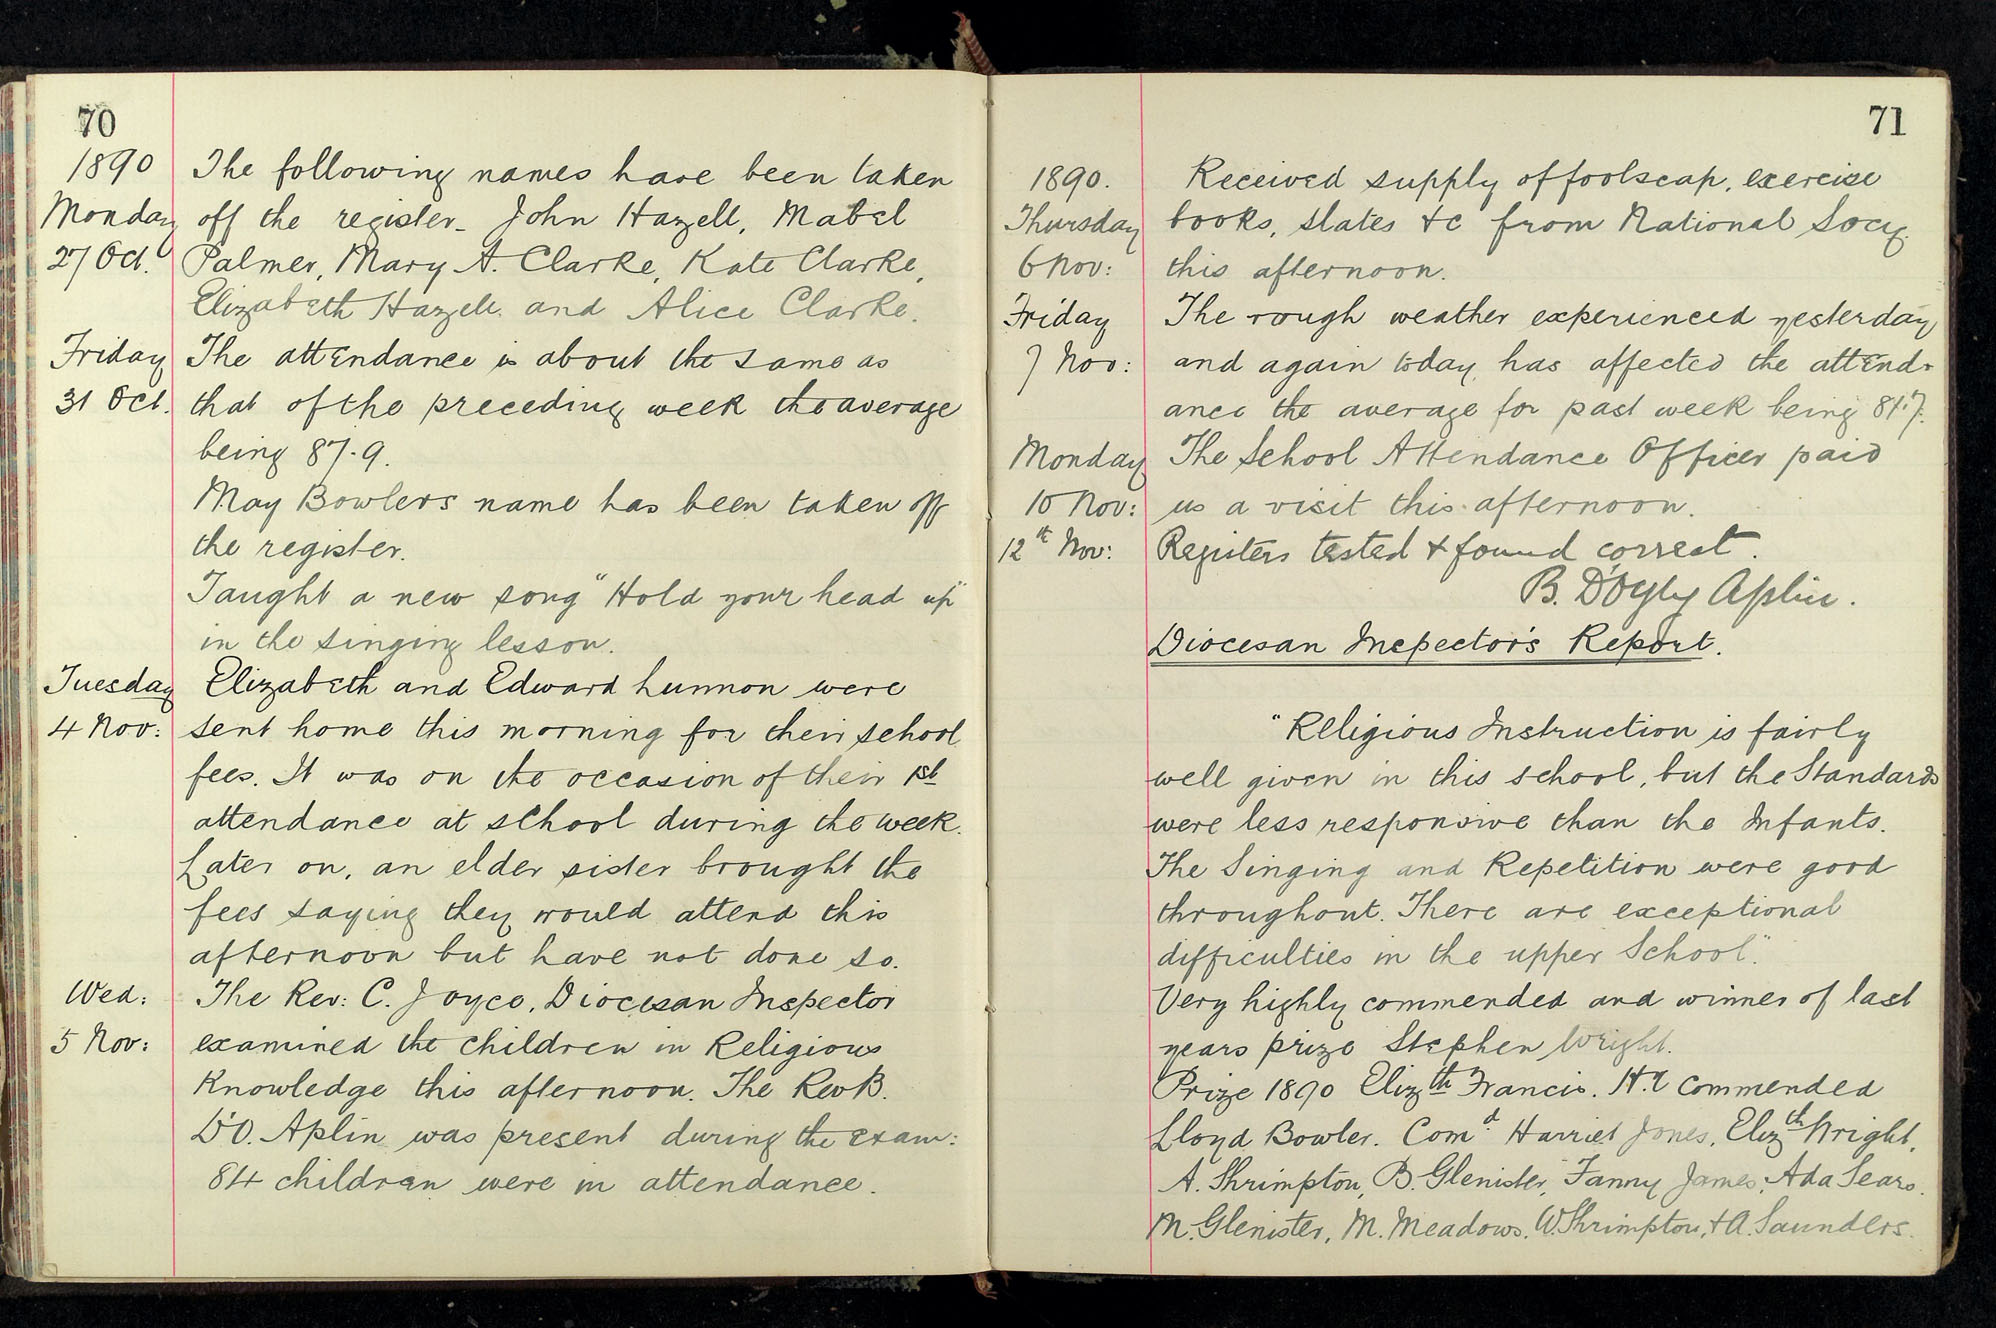 70
1890 The following names have been taken
Monday off the register - John Hazell, Mabel
27 Oct. Palmer, Mary A. Clarke, Kate Clarke,
Elizabeth Hazell and Alice Clarke.
Friday The attendance is about the same as
31 Oct. that of the preceding week the average
being 87.9.
May Bowlers name has been taken off
the register.
Taught a new song "Hold your head up"
in the singing lesson.
Tuesday Elizabeth and Edward Lunnon were
4 Nov: sent home this morning for their school
fees. It was on the occasion of their 1st
attendance at school during the week.
Later on, an elder sister brought the
fees saying they would attend this
afternoon but have not done so.
Wed: The Rev: C. Joyce, Diocesan Inspector
5 Nov: examined the children in Religious
Knowledge this afternoon. The Rev B.
D'O. Aplin was present during the exam:
84 children were in attendance.
71
1890. Received supply of foolscap, exercise
Thursday books, slates &c from National Socy.
6 Nov: this afternoon.
Friday The rough weather experienced yesterday
7 Nov: and again today, has affected the attend-
ance the average for past week being 81.7.
Monday The School Attendance Officer paid
10 Nov: us a visit this afternoon.
12th Nov: Registers tested & found correct.
B. D'Oyly Aplin.
Diocesan Inspector's Report.
"Religious Instruction is fairly
well given in this school, but the Standards
were less responsive than the Infants.
The Singing and Repetition were good
throughout. There are exceptional
difficulties in the upper School."
Very highly commended and winner of last
years prize Stephen Wright.
Prize 1890 Elizth Francis. H.y commended
Lloyd Bowler. Comd: Harriet Jones, Elizth Wright,
A. Shrimpton, B. Glenister, Fanny James, Ada Sears.
M. Glenister, M. Meadows, W. Shrimpton, & A. Saunders.